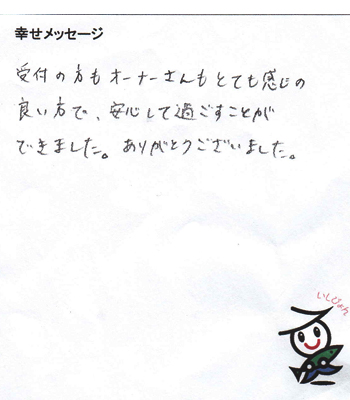 幸せメッセージ
受付の方もオーナーさんもとても感じの
良い方で、安心して過ごすことが
できました。ありがとうございました。
いしぴょん